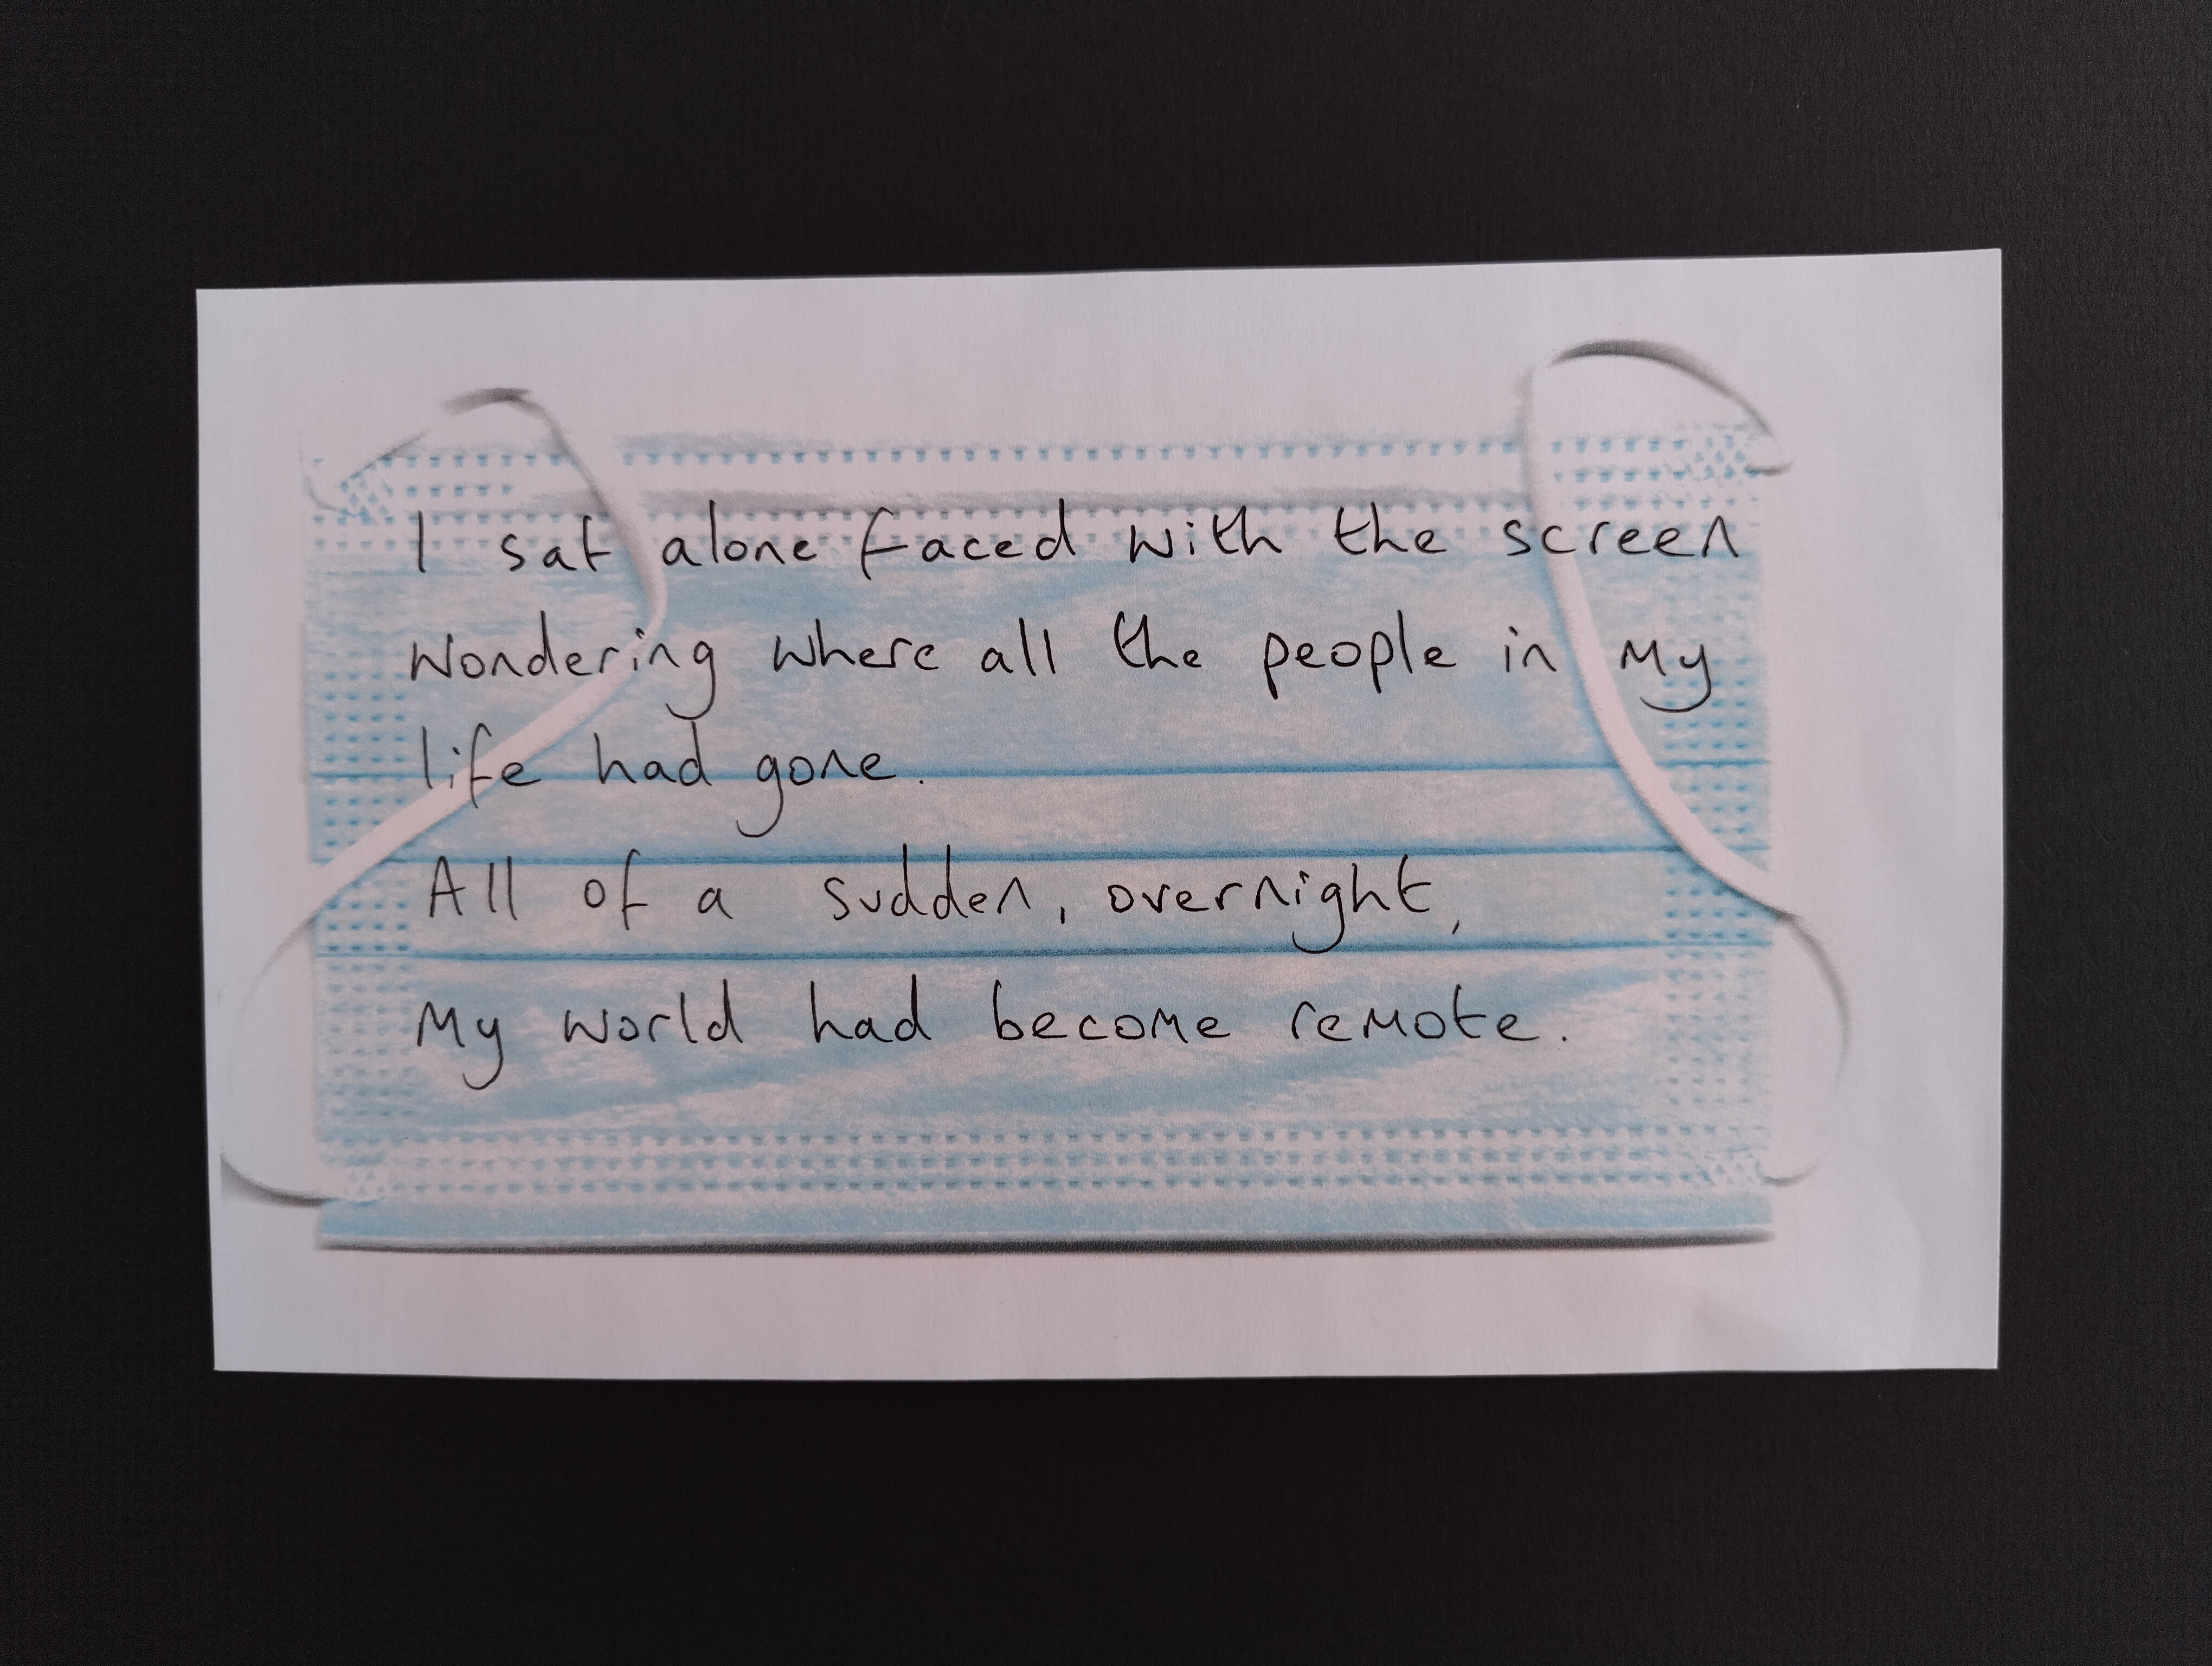 I sat alone faced with the screen
Wondering where all the people in my
life had gone.
All of a sudden, overnight,
My world had become remote.